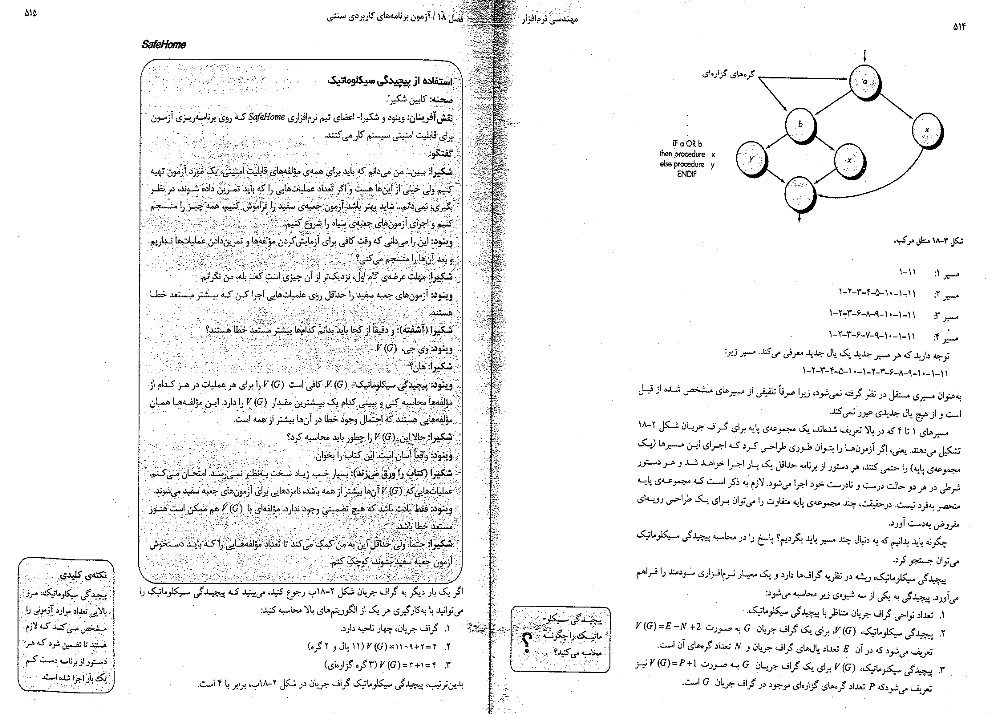 ۵۱۴
مهندسی نرم‌افزار
گره‌های گزاره‌ای
a
b
x
y
x
IF a OR b
then procedure x
else procedure y
ENDIF
شکل ۳-۱۸ منطق مرکب.
مسیر ۱: ۱۱-۱
مسیر ۲: ۱۱-۱-۱۰-۵-۴-۳-۲-۱
مسیر ۳: ۱۱-۱-۱۰-۹-۸-۶-۳-۲-۱
مسیر ۴: ۱۱-۱-۱۰-۹-۷-۶-۳-۲-۱
توجه دارید که هر مسیر جدید یک یال جدید معرفی می‌کند. مسیر زیر:
۱۱-۱-۱۰-۹-۸-۶-۳-۲-۱-۱۰-۵-۴-۳-۲-۱
به‌عنوان مسیری مستقل در نظر گرفته نمی‌شود، زیرا صرفاً تلفیقی از مسیرهای مشخص شده از قبل
است و از هیچ یال جدیدی عبور نمی‌کند.
مسیرهای ۱ تا ۴ که در بالا تعریف شده‌اند، یک مجموعه‌ی پایه برای گراف جریان شکل ۲-۱۸
تشکیل می‌دهند. یعنی، اگر آزمون‌ها را بتوان طوری طراحی کرد که اجرای این مسیرها (یک
مجموعه‌ی پایه) را حتمی کنند، هر دستور از برنامه حداقل یک بار اجرا خواهد شد و هر دستور
شرطی در هر دو حالت درست و نادرست خود اجرا می‌شود. لازم به ذکر است که مجموعه‌ی پایه
منحصر به‌فرد نیست. درحقیقت، چند مجموعه‌ی پایه متفاوت را می‌توان برای یک طراحی رویه‌ای
مفروض به‌دست آورد.
چگونه باید بدانیم که به دنبال چند مسیر باید بگردیم؟ پاسخ را در محاسبه پیچیدگی سیکلوماتیک
می‌توان جستجو کرد.
پیچیدگی سیکلوماتیک، ریشه در نظریه گراف‌ها دارد و یک معیار نرم‌افزاری سودمند را فراهم
می‌آورد. پیچیدگی به یکی از سه شیوه‌ی زیر محاسبه می‌شود:
۱. تعداد نواحی گراف جریان متناظر با پیچیدگی سیکلوماتیک.
۲. پیچیدگی سیکلوماتیک، V(G)، برای یک گراف جریان G به صورت V(G)=E-N+2
تعریف می‌شود که در آن E تعداد یال‌های گراف جریان و N تعداد گره‌های آن است.
۳. پیچیدگی سیکلوماتیک، V(G) برای یک گراف جریان G به صورت V(G)=P+1 نیز
تعریف می‌شود که P تعداد گره‌های گزاره‌ای موجود در گراف جریان G است.
پیچیدگی سیکلو-
ماتیک را چگونه
محاسبه می‌کنید؟
؟
فصل ۱۸ / آزمون برنامه‌های کاربردی سنتی
۵۱۵
SafeHome
استفاده از پیچیدگی سیکلوماتیک
صحنه: کابین شکیرا.
نقش‌آفرینان: وینود و شکیرا- اعضای تیم نرم‌افزاری SafeHome که روی برنامه‌ریزی آزمون
برای قابلیت امنیتی سیستم کار می‌کنند.
گفتگو:
شکیرا: ببین.. من می‌دانم که باید برای همه‌ی مؤلفه‌های قابلیت امنیتی، یک مورد آزمون تهیه
کنیم ولی خیلی از این‌ها هست و اگر تعداد عملیات‌هایی را که باید تمرین داده شوند، در نظر
بگیری، نمی‌دانم.. شاید بهتر باشد آزمون جعبه‌ی سفید را فراموش کنیم، همه چیز را منسجم
کنیم و اجرای آزمون‌های جعبه‌ی سیاه را شروع کنیم.
وینود: این را می‌دانی که وقت کافی برای آزمایش‌کردن مؤلفه‌ها و تمرین‌دادن عملیات‌ها نداریم
و بعد آن‌ها را منسجم می‌کنی؟
شکیرا: مهلت عرضه‌ی گام اول، نزدیک‌تر از آن چیزی است که... بله، من نگرانم.
وینود: آزمون‌های جعبه سفید را حداقل روی عملیات‌هایی اجرا کن که بیشتر مستعد خطا
هستند.
شکیرا (آشفته): و دقیقاً از کجا باید بدانم کدام‌ها بیشتر مستعد خطا هستند؟
وینود: وی جی، V(G).
شکیرا: هان؟
وینود: پیچیدگی سیکلوماتیک- V(G). کافی است V(G) را برای هر عملیات در هر کدام از
مؤلفه‌ها محاسبه کنی و ببینی کدام یک بیشترین مقدار V(G) را دارد. این مؤلفه‌ها همان
مؤلفه‌هایی هستند که احتمال وجود خطا در آن‌ها بیشتر از همه است.
شکیرا: حالا این V(G) را چطور باید محاسبه کرد؟
وینود: واقعاً آسان است. این کتاب را بخوان.
شکیرا (کتاب را ورق می‌زند): بسیار خب، زیاد سخت به‌نظر نمی‌رسد. امتحان می‌کنم.
عملیات‌هایی که V(G) آن‌ها بیشتر از همه باشد، نامزدهایی برای آزمون‌های جعبه سفید می‌شوند.
وینود: فقط یادت باشد که هیچ تضمینی وجود ندارد. مؤلفه‌ای با V(G) هم ممکن است هنوز
مستعد خطا باشد.
شکیرا: حتماً. ولی حداقل این به من کمک می‌کند تا تعداد مؤلفه‌هایی را که باید دستخوش
آزمون جعبه سفید بشوند، کوچک کنم.
اگر یک بار دیگر به گراف جریان شکل ۲-۱۸ب رجوع کنید، می‌بینید که پیچیدگی سیکلوماتیک را
می‌توانید با به‌کارگیری هر یک از الگوریتم‌های بالا محاسبه کنید:
۱. گراف جریان، چهار ناحیه دارد.
۲. V(G)=۱۱-۹+۲=۴ (۱۱ یال و ۹ گره)
۳. V(G)=۳+۱=۴ (۳ گره گزاره‌ای)
بدین‌ترتیب، پیچیدگی سیکلوماتیک گراف جریان در شکل ۲-۱۸ب، برابر با ۴ است.
نکته‌ی کلیدی
پیچیدگی سیکلوماتیک، مرز
بالایی تعداد موارد آزمونی را
مشخص می‌کند که لازم
هستند تا تضمین شود که هر
دستور از برنامه دست کم
یک بار اجرا شده است.